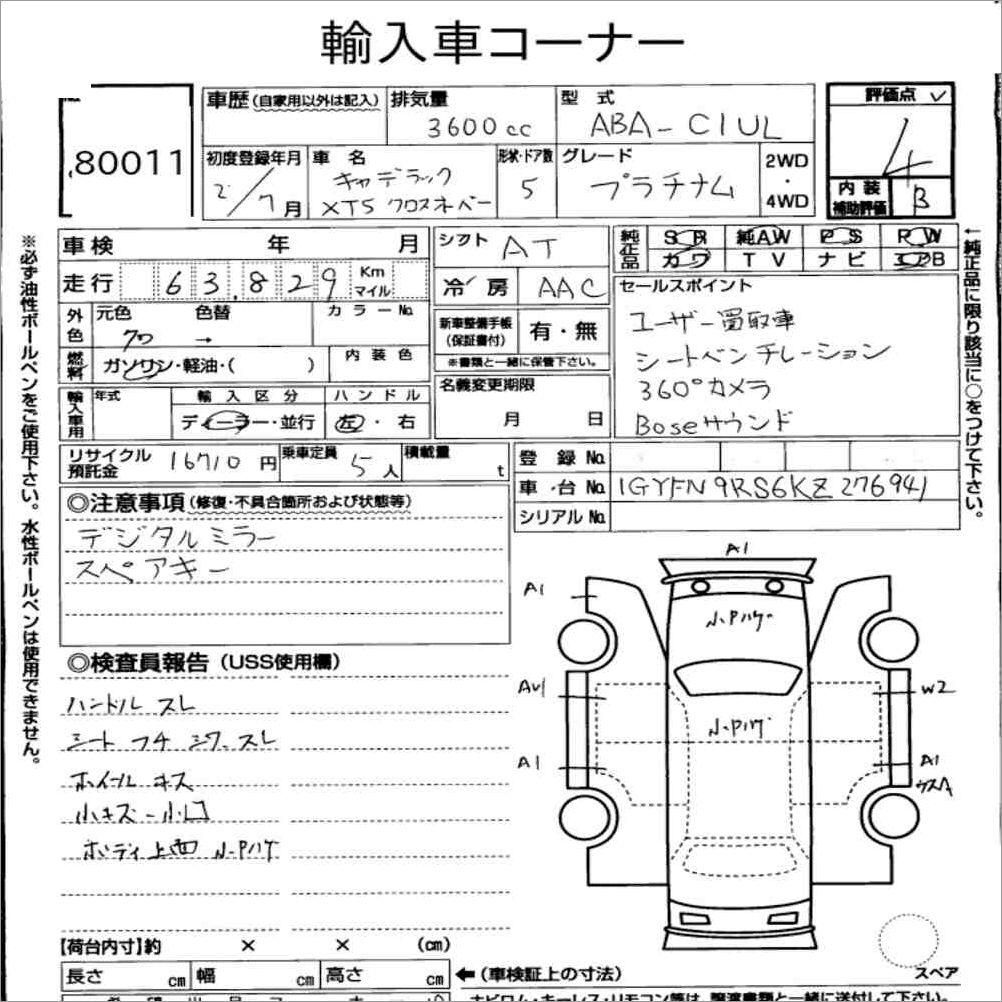 輸入車コーナー
80011
車歴 (自家用以外は記入)
排気量
3600cc
型式
ABA-C1UL
評価点
4
内装
補助評価
B
初度登録年月
2/7月
車名
キャデラック
XT5 クロスオーバー
形状・ドア数
5
グレード
プラチナム
2WD
・
4WD
車検 年 月
走行 63,829 Km マイル
シフト AT
冷房 AAC
純正品
SR 純AW PS PW
カワ TV ナビ エアB
外色
元色 色替 カラーNo.
クロ →
燃料 ガソリン・軽油・( )
内装色
新車整備手帳
(保証書付)
有・無
※書類と一緒に保管下さい。
名義変更期限
月 日
セールスポイント
ユーザー買取車
シートベンチレーション
360°カメラ
Boseサウンド
輸入車用
年式 輸入区分 ハンドル
ディーラー・並行 左・右
リサイクル
預託金
16710円
乗車定員 5人
積載量 t
登録No.
車台No. 1GYFN9RS6KZ276941
シリアルNo.
◎注意事項 (修復・不具合箇所および状態等)
デジタルミラー
スペアキー
◎検査員報告 (USS使用欄)
ハンドル スレ
シート フチ シワ スレ
ホイール キズ
小キズ・小凹
ボディ上面 小・Pハゲ
A1
A1
小・Pハゲ
AU1
W2
小・Pハゲ
A1
A1
ウスA
スペア
【荷台内寸】約 × × (cm)
長さ cm 幅 cm 高さ cm
←(車検証上の寸法)
※必ず油性ボールペンをご使用下さい。水性ボールペンは使用できません。
←純正品に限り該当に○をつけて下さい。